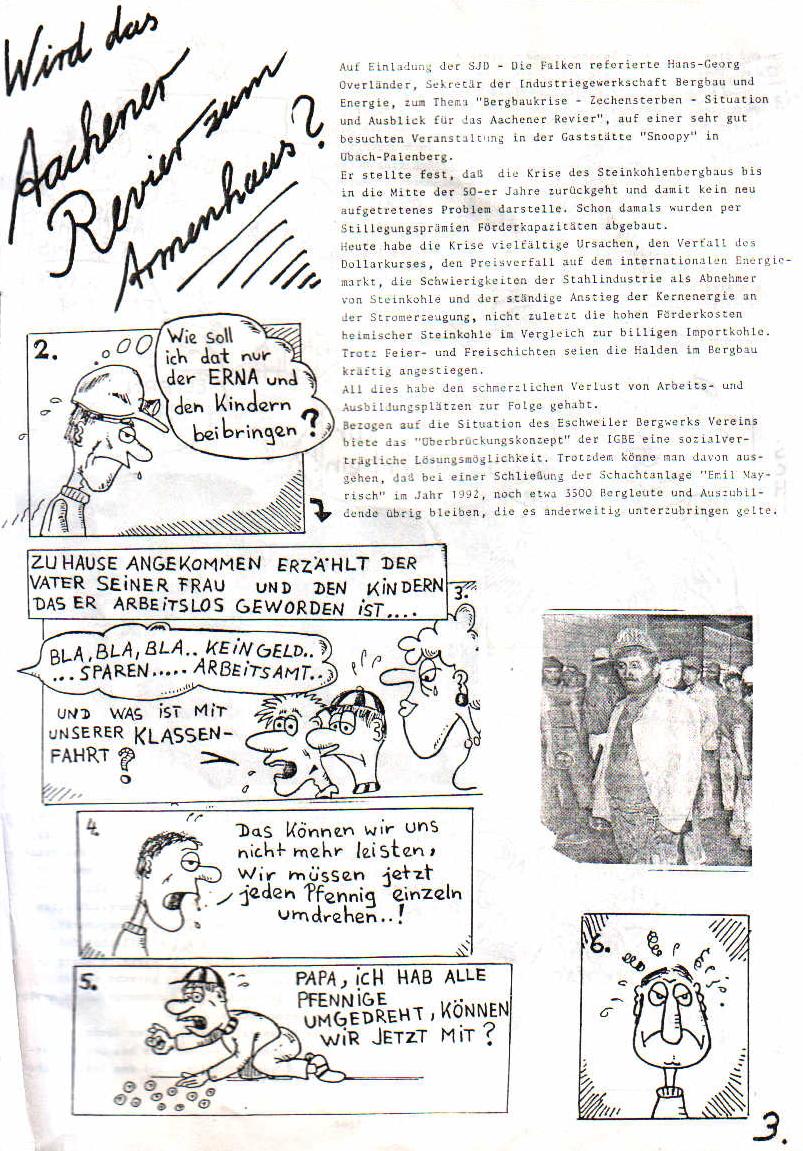 Wird das
Aachener
Revier zum
Armenhaus?
Auf Einladung der SJD - Die Falken referierte Hans-Georg
Overländer, Sekretär der Industriegewerkschaft Bergbau und
Energie, zum Thema "Bergbaukrise - Zechensterben - Situation
und Ausblick für das Aachener Revier", auf einer sehr gut
besuchten Veranstaltung in der Gaststätte "Snoopy" in
Übach-Palenberg.
Er stellte fest, daß die Krise des Steinkohlenbergbaus bis
in die Mitte der 50-er Jahre zurückgeht und damit kein neu
aufgetretenes Problem darstelle. Schon damals wurden per
Stillegungsprämien Förderkapazitäten abgebaut.
Heute habe die Krise vielfältige Ursachen, den Verfall des
Dollarkurses, den Preisverfall auf dem internationalen Energie-
markt, die Schwierigkeiten der Stahlindustrie als Abnehmer
von Steinkohle und der ständige Anstieg der Kernenergie an
der Stromerzeugung, nicht zuletzt die hohen Förderkosten
heimischer Steinkohle im Vergleich zur billigen Importkohle.
Trotz Feier- und Freischichten seien die Halden im Bergbau
kräftig angestiegen.
All dies habe den schmerzlichen Verlust von Arbeits- und
Ausbildungsplätzen zur Folge gehabt.
Bezogen auf die Situation des Eschweiler Bergwerks Vereins
biete das "Überbrückungskonzept" der IGBE eine sozialver-
trägliche Lösungsmöglichkeit. Trotzdem könne man davon aus-
gehen, daß bei einer Schließung der Schachtanlage "Emil May-
risch" im Jahr 1992, noch etwa 3500 Bergleute und Auszubil-
dende übrig bleiben, die es anderweitig unterzubringen gelte.
2.
Wie soll
ich dat nur
der ERNA und
den Kindern
beibringen?
ZU HAUSE ANGEKOMMEN ERZÄHLT DER
VATER SEINER FRAU UND DEN KINDERN
DAS ER ARBEITSLOS GEWORDEN IST....
3.
BLA, BLA, BLA.. KEIN GELD..
... SPAREN..... ARBEITSAMT..
UND WAS IST MIT
UNSERER KLASSEN-
FAHRT?
4.
Das Können wir uns
nicht mehr leisten,
Wir müssen jetzt
jeden Pfennig einzeln
umdrehen..!
5.
PAPA, ICH HAB ALLE
PFENNIGE
UMGEDREHT, KÖNNEN
WIR JETZT MIT?
6.
3.